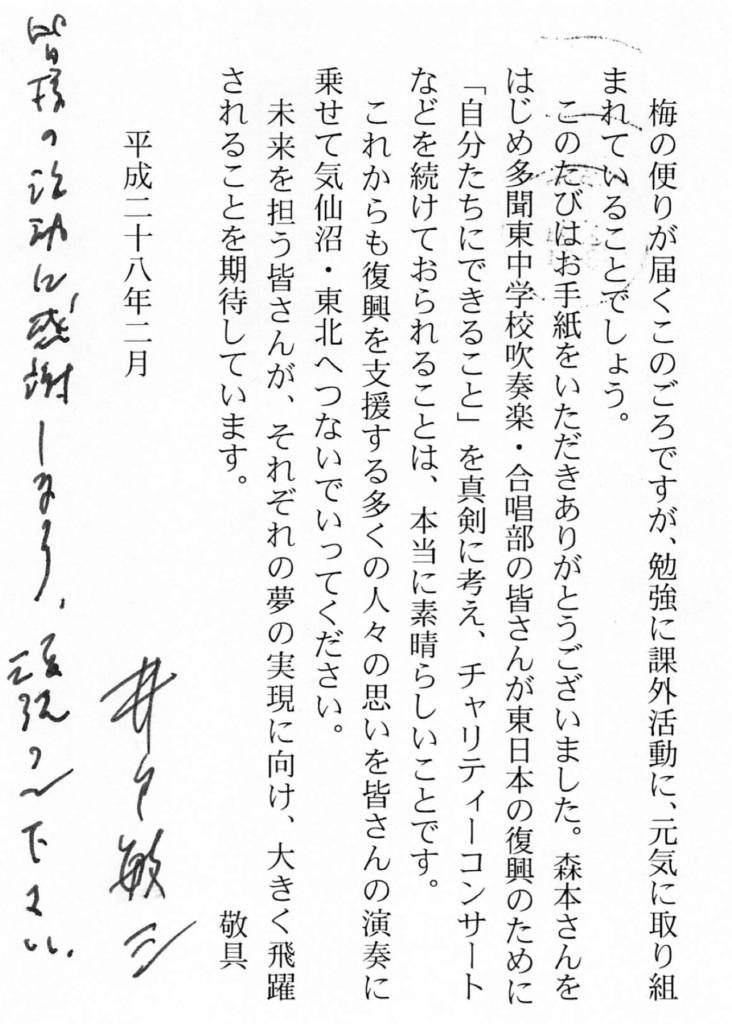 梅の便りが届くこのごろですが、勉強に課外活動に、元気に取り組
まれていることでしょう。
このたびはお手紙をいただきありがとうございました。森本さんを
はじめ多聞東中学校吹奏楽・合唱部の皆さんが東日本の復興のために
「自分たちにできること」を真剣に考え、チャリティーコンサート
などを続けておられることは、本当に素晴らしいことです。
これからも復興を支援する多くの人々の思いを皆さんの演奏に
乗せて気仙沼・東北へつないでいってください。
未来を担う皆さんが、それぞれの夢の実現に向け、大きく飛躍
されることを期待しています。
敬具
平成二十八年二月
井戸敏三
皆様の活動に感謝します。頑張って下さい。